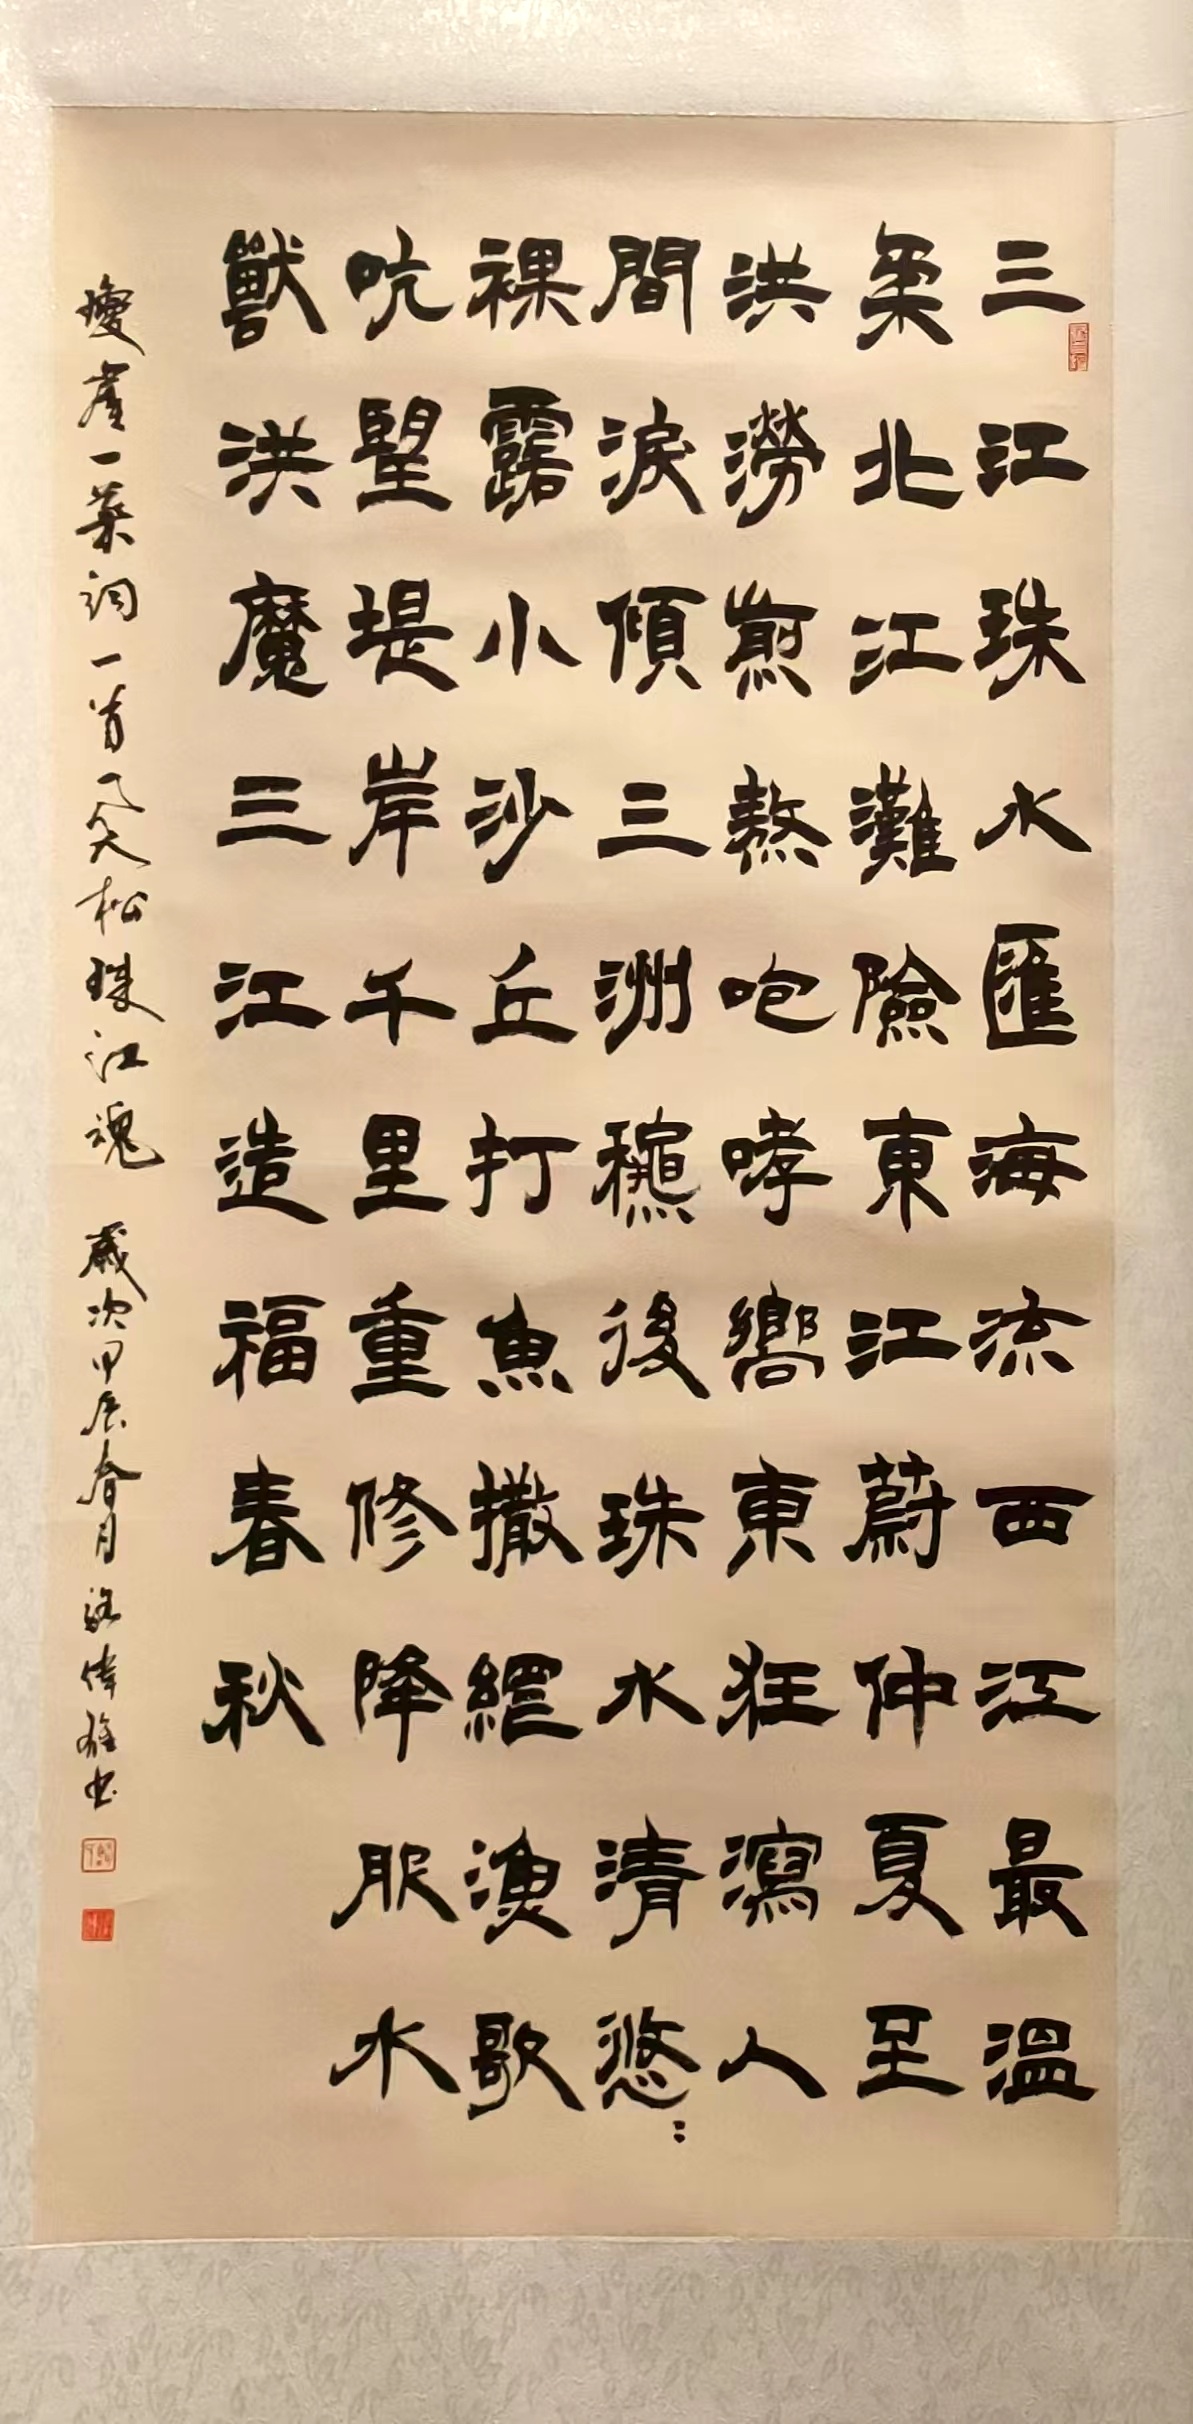 三江珠水匯海流西江最溫
柔北江灘險東江蔚仲夏至
洪澇煎熬咆哮嚮東狂瀉人
間淚傾三洲龝後珠水清悠〻
裸露小沙丘打魚撒網漁歌
吭望堤岸千里重修降服水
獸洪魔三江造福春秋
瓊崖一葉詞一首風入松珠江魂 歲次甲辰春月偉雄书